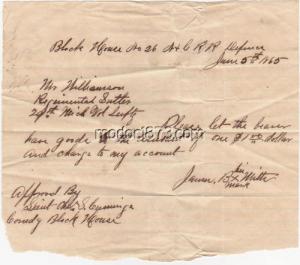 Block House No 26 N & C R R Defence
June 5th 1865
Mr Williamson
Regimental Sutler
29th Mich Vol Infty
Please let the bearer
have goods to the amount of one $1 00 dollar
and charge to my account.
James B his X mark Mills
Approved By
Lieut
Comdg Block House
modoni873.com